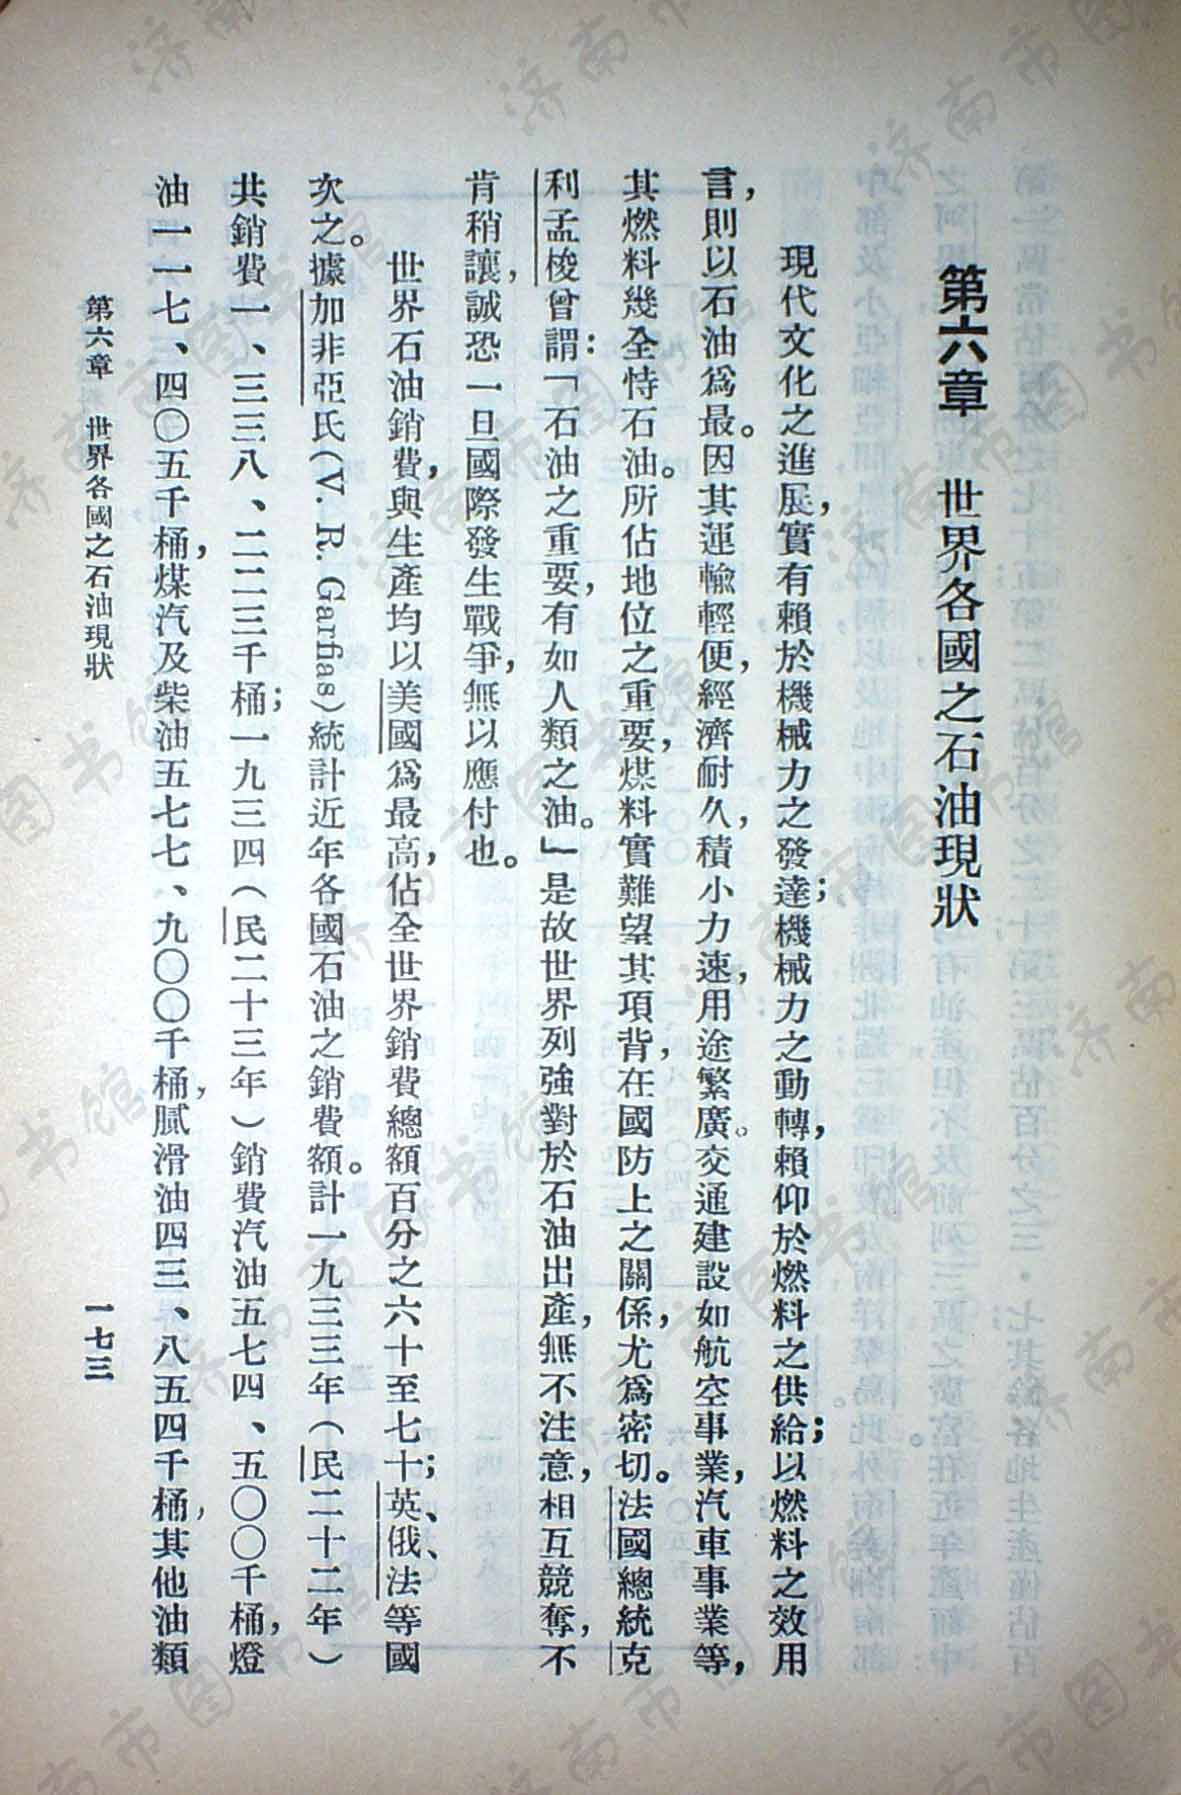 第六章　世界各國之石油現狀
現代文化之進展，實有賴於機械力之發達；機械力之動轉，賴仰於燃料之供給；以燃料之效用
言，則以石油爲最。因其運輸輕便，經濟耐久，積小力速，用途繁廣。交通建設如航空事業，汽車事業等，
其燃料幾全恃石油。所佔地位之重要，煤料實難望其項背，在國防上之關係，尤爲密切。法國總統克
利孟梭曾謂：「石油之重要，有如人類之油。」是故世界列強對於石油出產，無不注意，相互競奪，不
肯稍讓，誠恐一旦國際發生戰爭，無以應付也。
世界石油銷費，與生產均以美國爲最高，佔全世界銷費總額百分之六十至七十；英、俄、法等國
次之。據加非亞氏（V. R. Garfias）統計近年各國石油之銷費額。計一九三三年（民二十二年）
共銷費一、三三八、二二三千桶；一九三四（民二十三年）銷費汽油五七四、五〇〇千桶，燈
油一一七、四〇五千桶，煤汽及柴油五七七、九〇〇千桶，膩滑油四三、八五四千桶，其他油類
第六章　世界各國之石油現狀
一七三
济南市图书馆